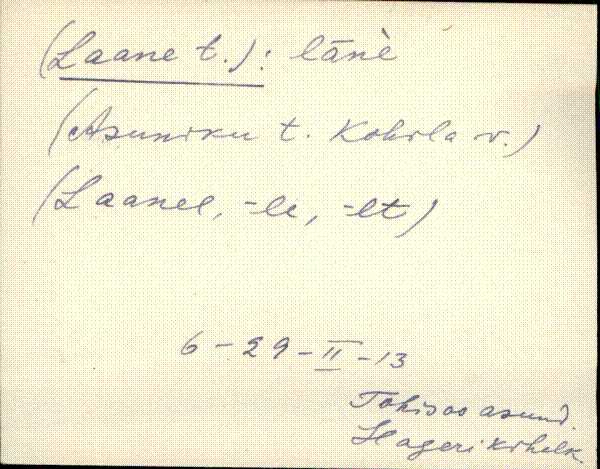 (Laane t.): lānè
(Asuniku t. Kohila v.)
(Laanel, -le, -lt)
6-29-II-13
Tohisoo asund.
Hageri kihelk.